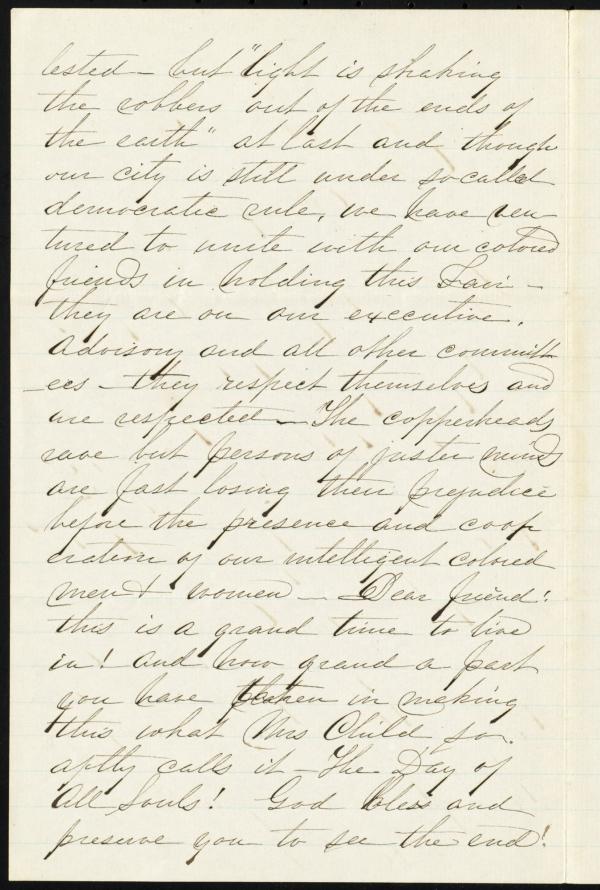 lested – but "light is shaking
the robbers out of the ends of
the earth" at last and though
our city is still under so called
democratic rule, we have ven
tured to unite with our colored
friends in holding this Fair –
they are on our executive,
Advisory and all other committ
ees – they respect themselves and
are respected – The copperheads
rave but persons of juster minds
are fast losing their prejudice
before the presence and coop
eration of our intelligent colored
men & women – Dear friend!
this is a grand time to live
in! And how grand a part
you have taken in making
this what Mrs Child so
aptly calls it – The Day of
All Souls! God bless and
preserve you to see the end!